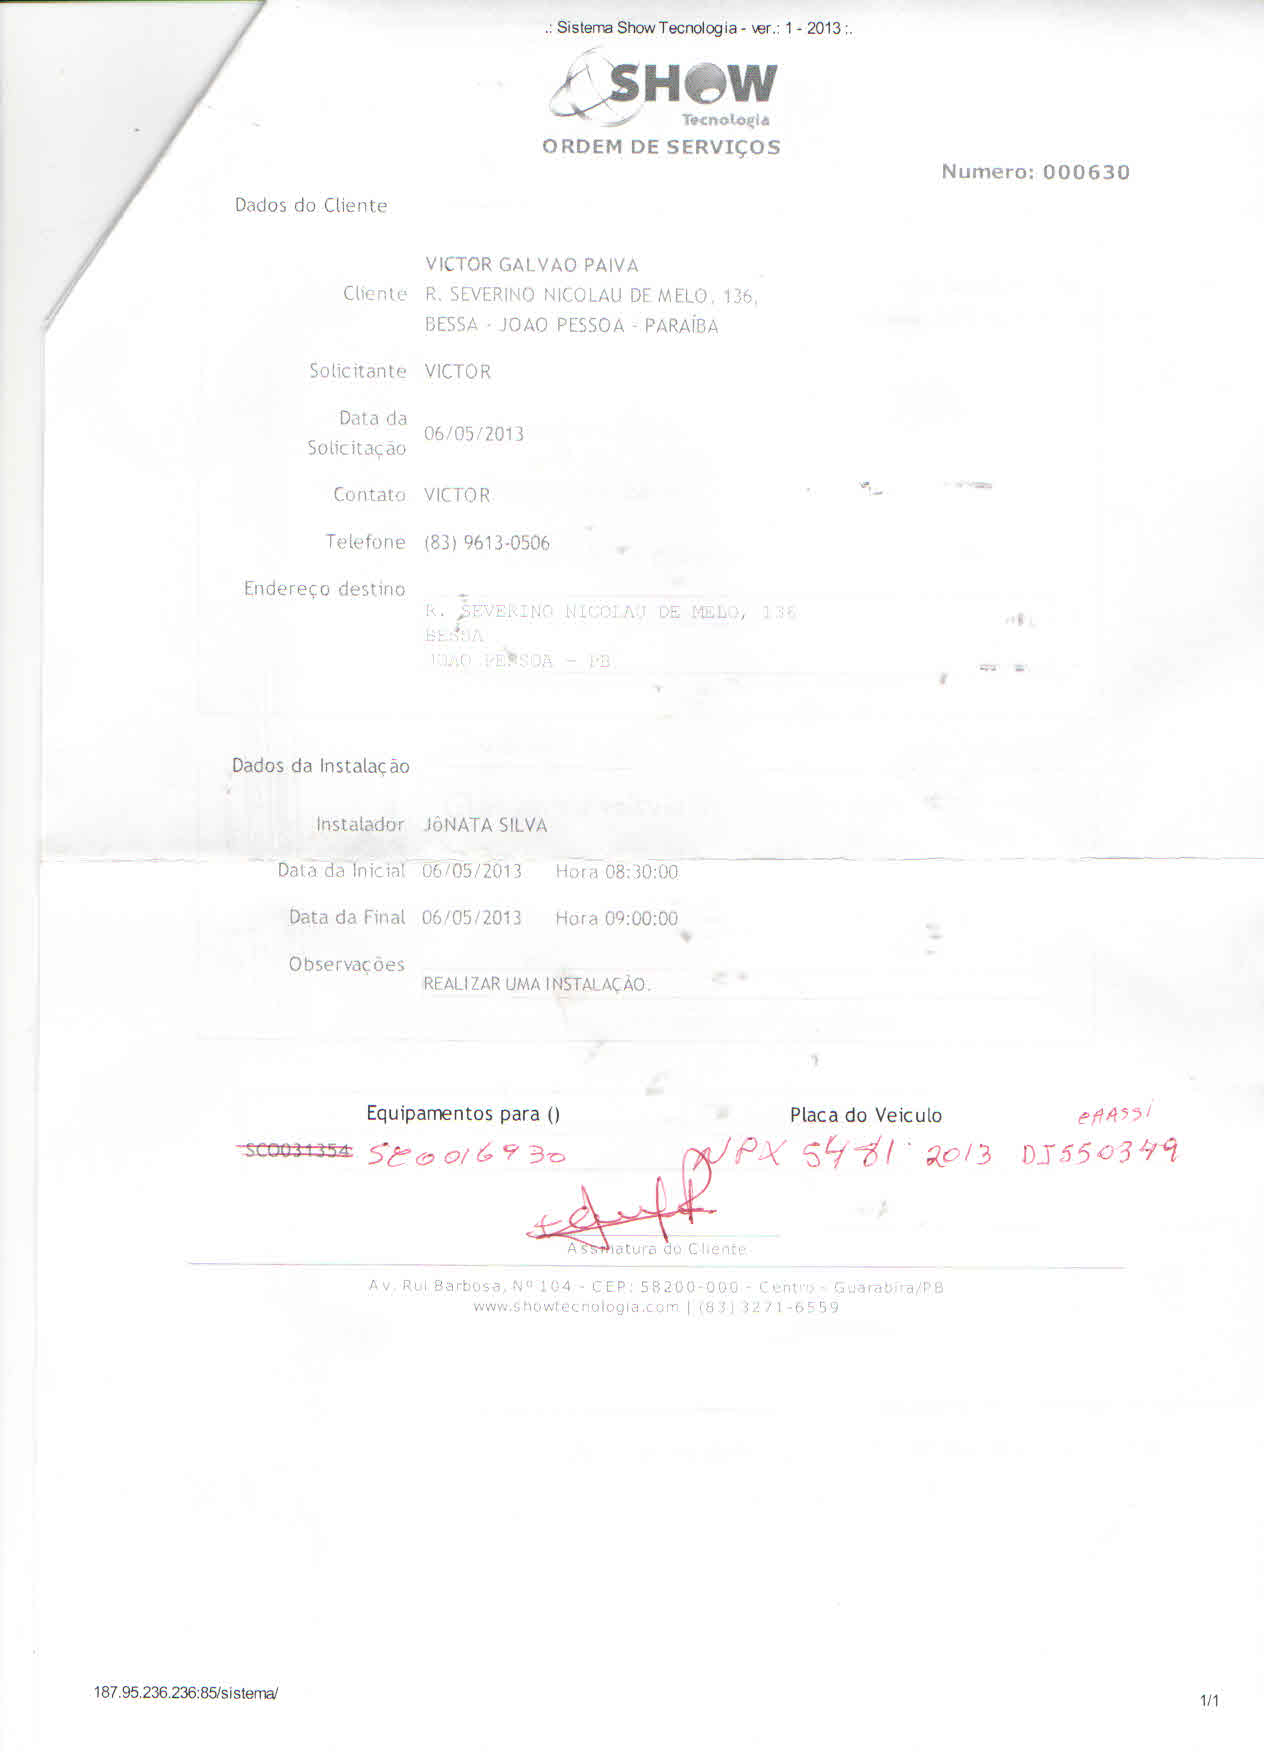 .: Sistema Show Tecnologia - ver.: 1 - 2013 :.
SHOW
Tecnologia
ORDEM DE SERVIÇOS
Numero: 000630
Dados do Cliente
VICTOR GALVAO PAIVA
Cliente R. SEVERINO NICOLAU DE MELO, 136,
BESSA - JOAO PESSOA - PARAÍBA
Solicitante VICTOR
Data da
Solicitação 06/05/2013
Contato VICTOR
Telefone (83) 9613-0506
Endereço destino
R. SEVERINO NICOLAU DE MELO, 136
BESSA
JOAO PESSOA - PB
Dados da Instalação
Instalador JôNATA SILVA
Data da Inicial 06/05/2013 Hora 08:30:00
Data da Final 06/05/2013 Hora 09:00:00
Observações
REALIZAR UMA INSTALAÇÃO.
Equipamentos para () Placa do Veiculo
SC0031354 NPX 5481 2013 DJ550349
Assinatura do Cliente
Av. Rui Barbosa, Nº 104 - CEP: 58200-000 - Centro - Guarabira/PB
www.showtecnologia.com | (83) 3271-6559
187.95.236.236:85/sistema/
1/1